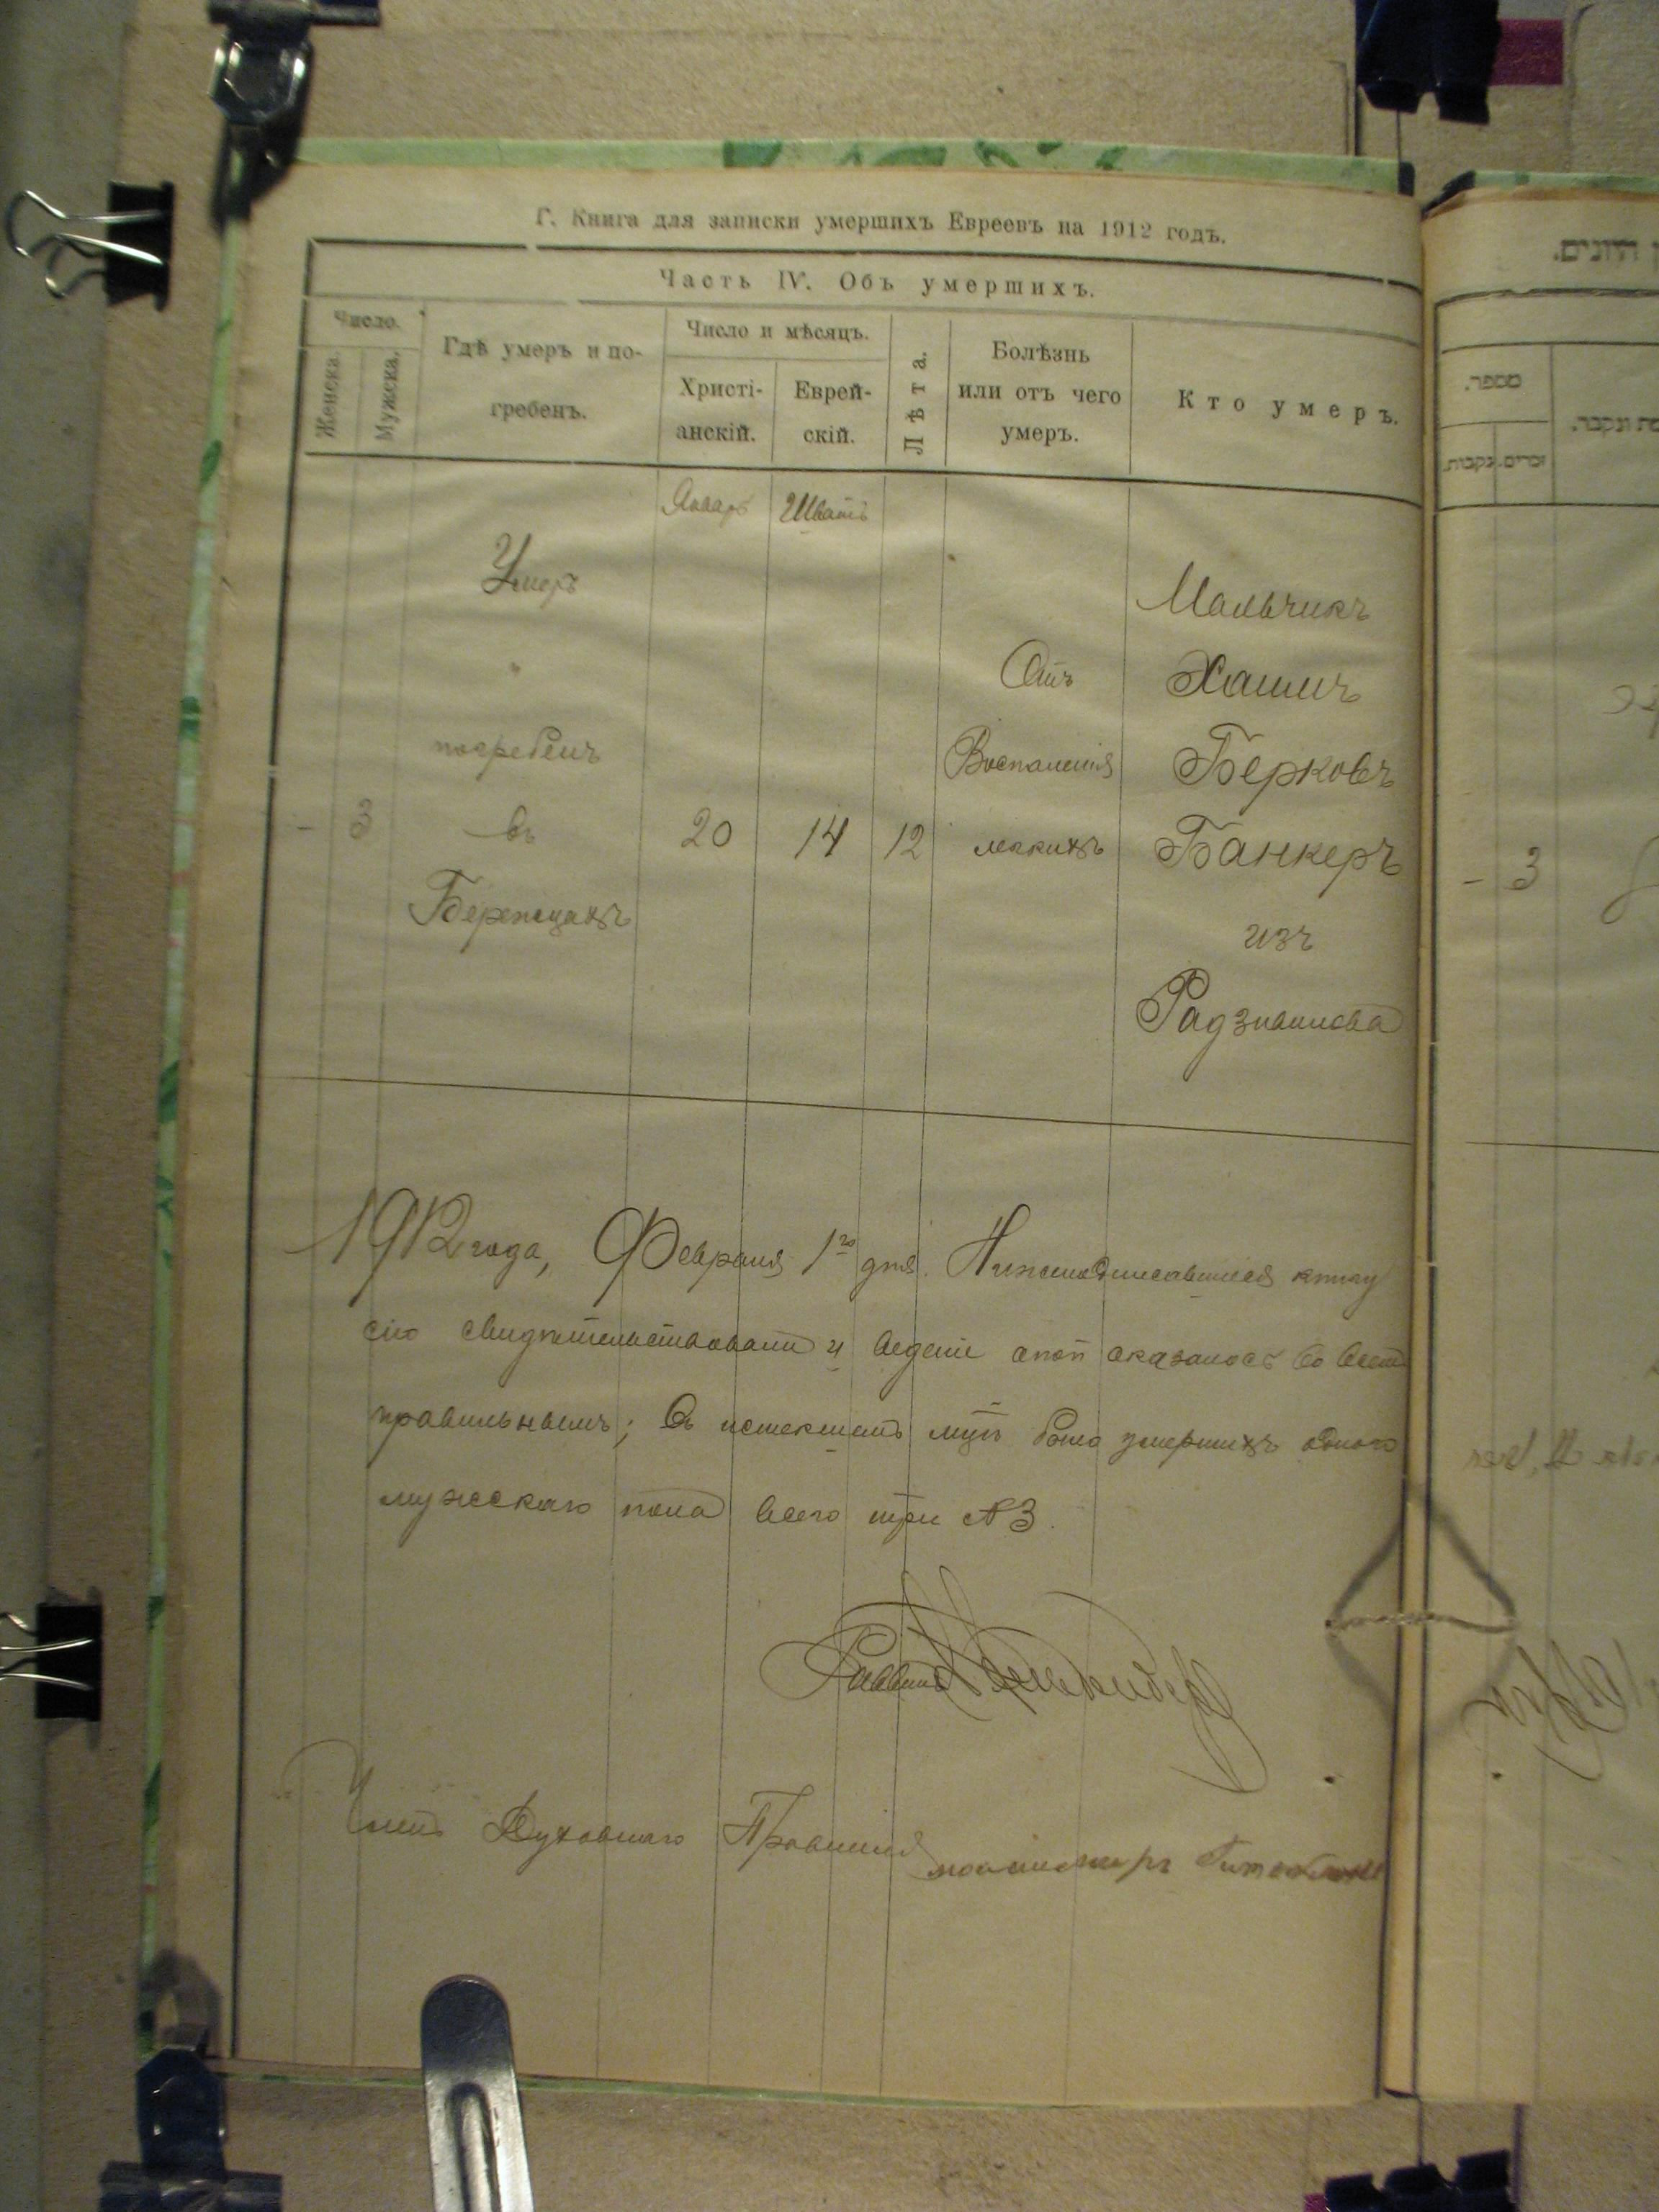 Г. Книга для записки умершихъ Евреевъ на 1912 годъ.
Часть IV. Объ умершихъ.
Число.
Женска.
Мужска.
Гдѣ умеръ и по-
гребенъ.
Число и мѣсяцъ.
Христі-
анскій.
Еврей-
скій.
Лѣта.
Болѣзнь
или отъ чего
умеръ.
Кто умеръ.
Январь
Шватъ
Умеръ
погребенъ
въ
Бережцахъ
- 3
20
14
12
Отъ
Воспаленія
легкихъ
Мальчикъ
Хаимъ
Берковъ
Банкеръ
изъ
1912 года, Февраля 1го дня. книгу
сію свидѣтельствовали и оказалось во всемъ
правильнымъ; Въ истекшемъ было умершихъ одного
мужскаго пола всего три №3.
Раввинъ
Членъ Духовнаго Правленія
מספר.
זכרים.
נקבות.
- 3